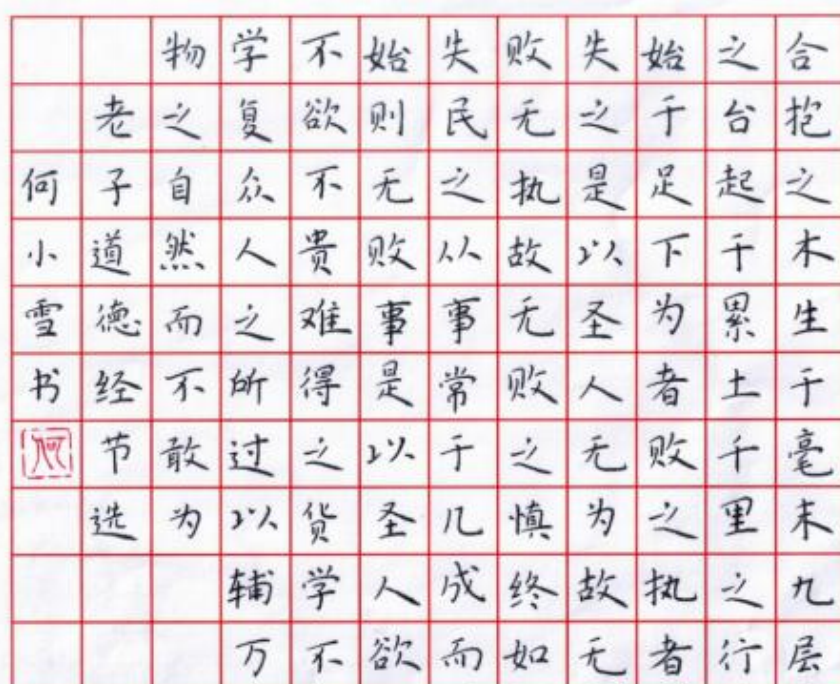 合抱之木生于毫末九层
之台起于累土千里之行
始于足下为者败之执者
失之是以圣人无为故无
败无执故无败之慎终如
失民之从事常于几成而
始则无败事是以圣人欲
不欲不贵难得之货学不
学复众人之所过以辅万
物之自然而不敢为
老子道德经节选
何小雪书
何